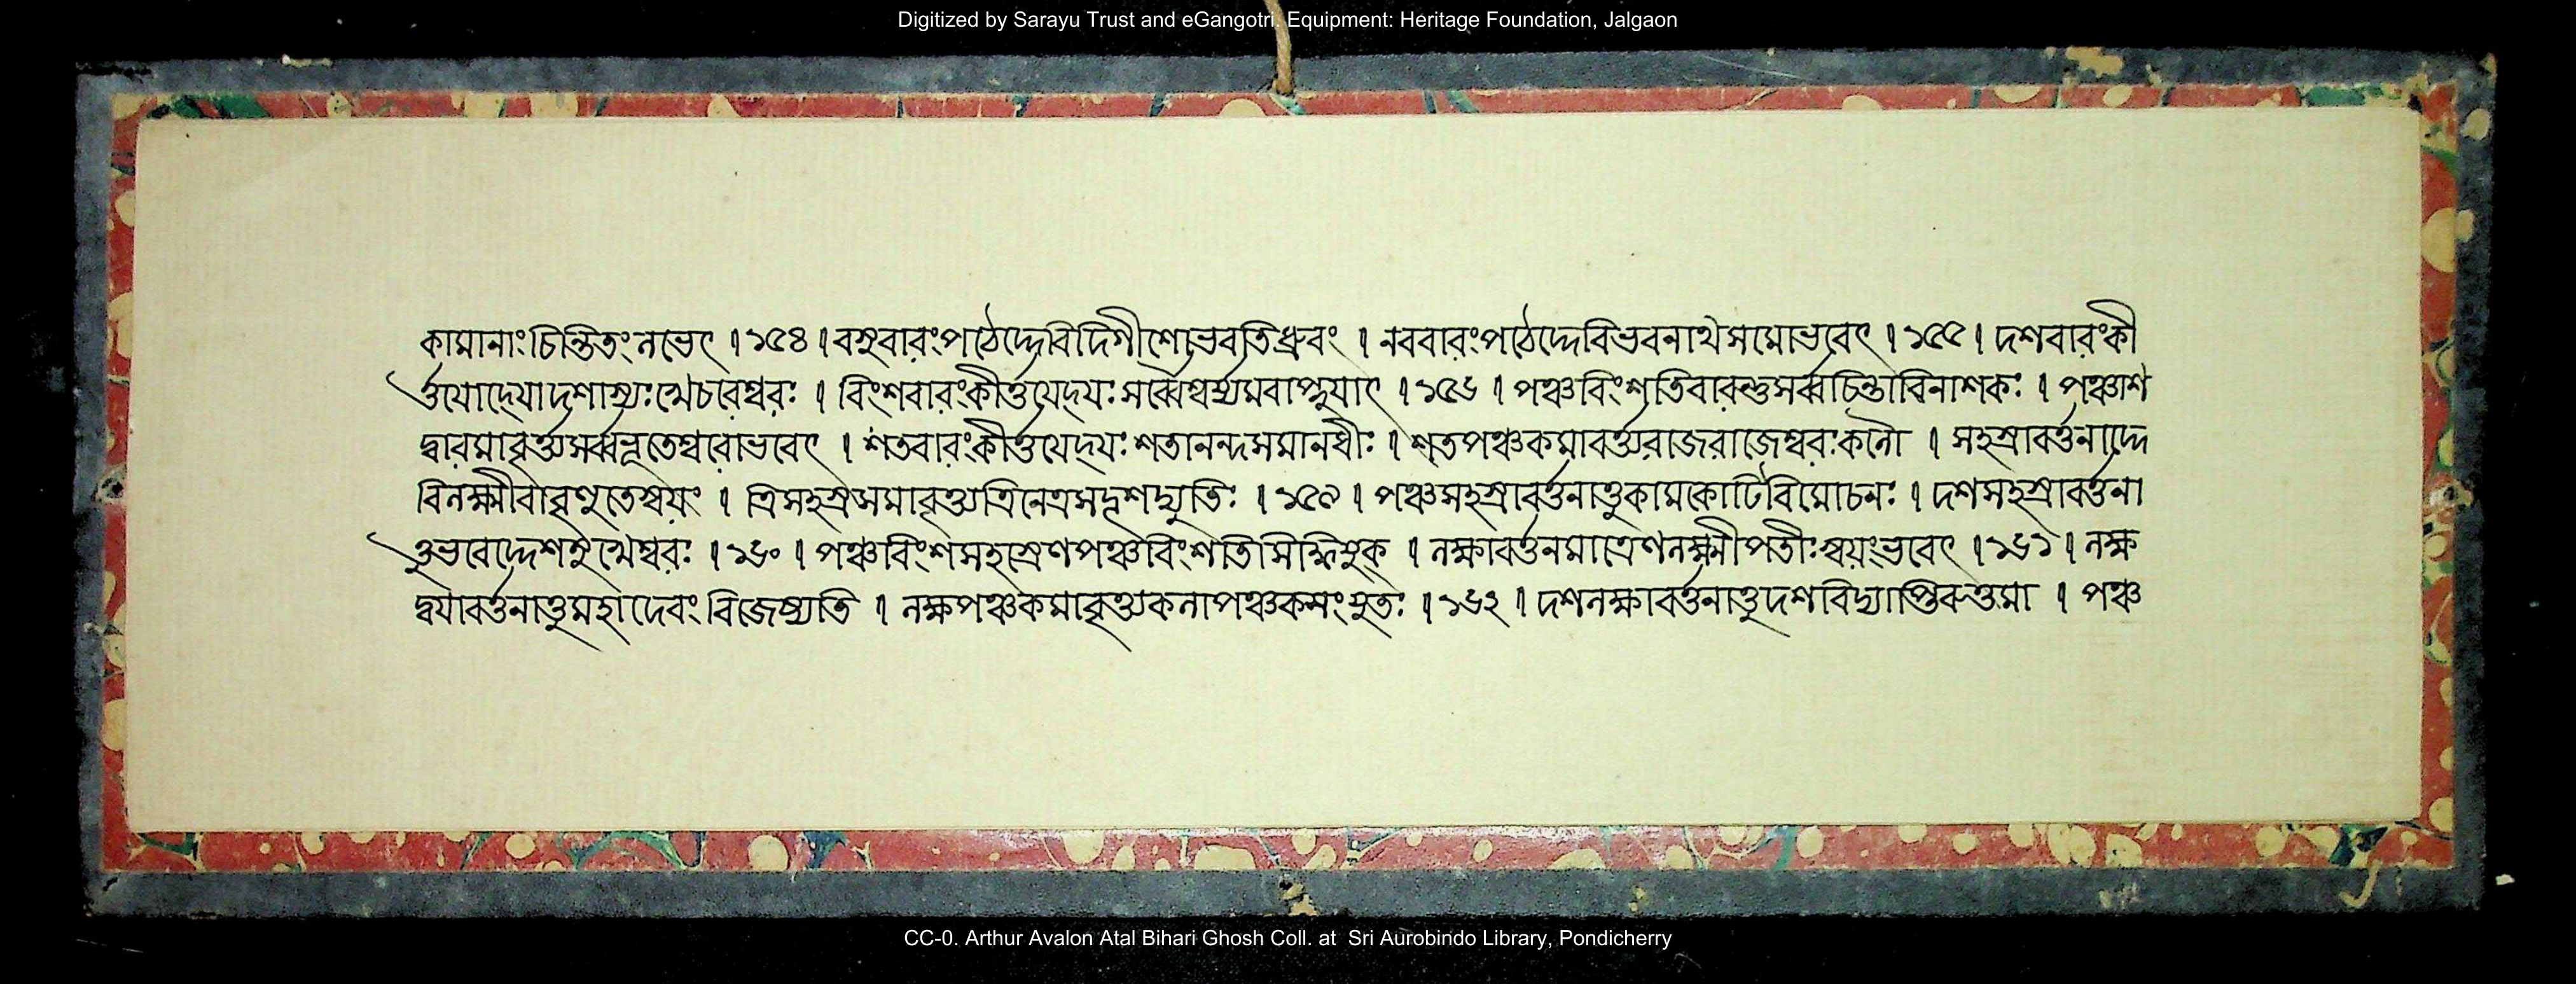 Digitized by Sarayu Trust and eGangotri. Equipment: Heritage Foundation, Jalgaon
কামানাং চিন্তিতং লভেৎ । ১৫৪ । বসুবারং পঠেদ্দেবি দিগীশো ভবতি ধ্রুবং । নববারং পঠেদ্দেবি ভবনাথসমো ভবেৎ । ১৫৫ । দশবারং কী
র্ত্তয়েদ্যো দশার্ণ্যঃ খেচরেশ্বরঃ । বিংশবারং কীর্ত্তয়েদ্যঃ সর্ব্বৈশ্বর্য্যমবাপ্নুয়াৎ । ১৫৬ । পঞ্চবিংশতিবারন্তু সর্ব্বচিন্তাবিনাশকঃ । পঞ্চাশ
দ্বারমাবৃর্ত্ত্য সর্ব্বভূতেশ্বরো ভবেৎ । শতবারং কীর্ত্তয়েদ্যঃ শতাননসমানধীঃ । শতপঞ্চকমাবর্ত্ত্য রাজরাজেশ্বরঃ কলৌ । সহস্রাবর্ত্তনাদ্দে
বি লক্ষ্মীরাবৃণুতে স্বয়ং । ত্রিসহস্রসমাবৃত্ত্য ত্রিনেত্রসদৃশদ্যুতিঃ । ১৫৯ । পঞ্চসহস্রাবর্ত্তনাত্তু কামকোটিবিমোচনঃ । দশসহস্রাবর্ত্তনা
ত্তু ভবেদ্দশমুখেশ্বরঃ । ১৬০ । পঞ্চবিংশসহস্রেণ পঞ্চবিংশতিসিদ্ধিধৃক্ । লক্ষাবর্ত্তনমাত্রেণ লক্ষ্মীপতীঃ স্বয়ং ভবেৎ । ১৬১ । লক্ষ
দ্বয়াবর্ত্তনাত্তু মহাদেবং বিজেষ্যতি । লক্ষপঞ্চকমাবৃত্ত্য কলাপঞ্চকসংযুতঃ । ১৬২ । দশলক্ষাবর্ত্তনাত্তু দশবিদ্যাপ্তিরুত্তমা । পঞ্চ
CC-0. Arthur Avalon Atal Bihari Ghosh Coll. at Sri Aurobindo Library, Pondicherry